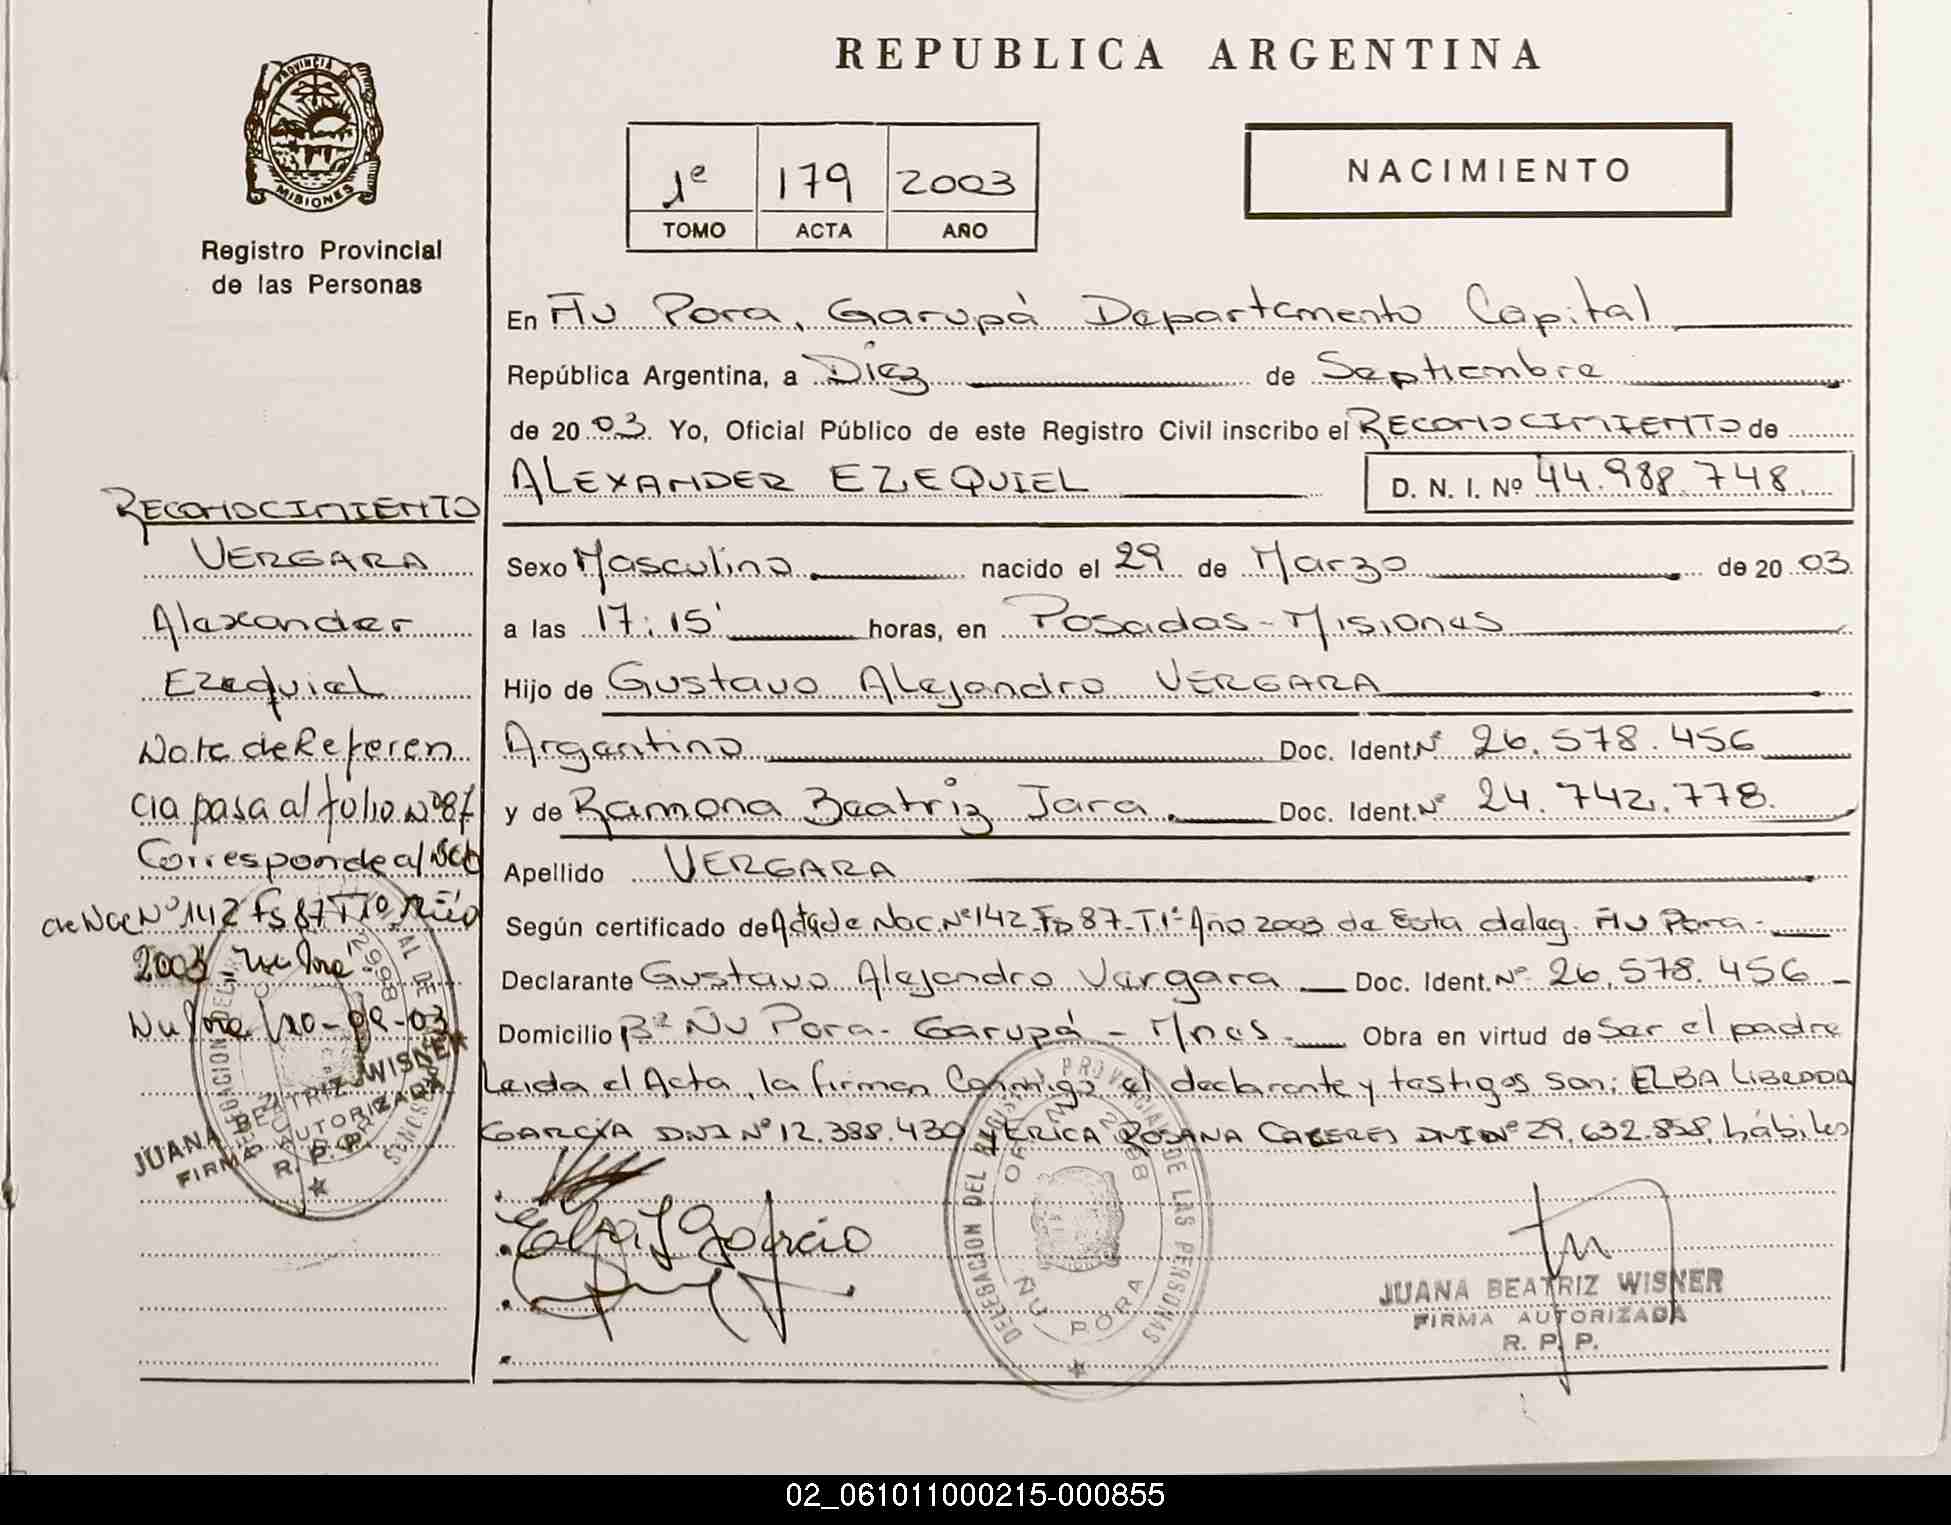 REPUBLICA ARGENTINA
PROVINCIA DE
MISIONES
Registro Provincial
de las Personas
1º 179 2003
TOMO ACTA AÑO
NACIMIENTO
En Ñu Pora, Garupá Departamento Capital
República Argentina, a Diez de Septiembre
de 2003. Yo, Oficial Público de este Registro Civil inscribo el RECONOCIMIENTO de
ALEXANDER EZEQUIEL D. N. I. Nº 44.988.748
Sexo Masculino nacido el 29 de Marzo de 2003
a las 17:15' horas, en Posadas - Misiones
Hijo de Gustavo Alejandro VERGARA
Argentino Doc. Ident. Nº 26.578.456
y de Ramona Beatriz Jara. Doc. Ident. Nº 24.742.778.
Apellido VERGARA
Según certificado de Acta de Nac. Nº 142 Fº 87 - T.1º Año 2003 de Esta deleg. Ñu Pora -
Declarante Gustavo Alejandro Vergara Doc. Ident. Nº 26.578.456
Domicilio Bº Ñu Pora - Garupá - Mnes - Obra en virtud de Ser el padre
Leida el Acta, la firman Conmigo el declarante y testigos son: ELBA LIBRADA
GARCIA DNI Nº 12.388.430 y ERICA ROSANA CACERES DNI Nº 29.632.858 hábiles
RECONOCIMIENTO
VERGARA
Alexander
Ezequiel
Nota de Referen
cia pasa al folio Nº 87
Corresponde al
de Nac Nº 142 Fs 87 T 1º Año
2003 - Ñu Pora
Ñu Pora 10-09-03
JUANA BEATRIZ WISNER
FIRMA AUTORIZADA
R. P. P.
Elba L Garcia
DELEGACION DEL REGISTRO PROVINCIAL DE LAS PERSONAS
ÑU PORA
JUANA BEATRIZ WISNER
FIRMA AUTORIZADA
R. P. P.
02_061011000215-000855